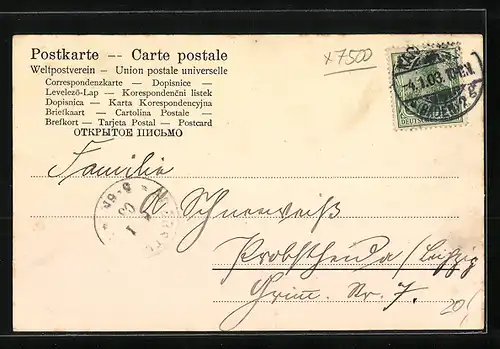 Postkarte -- Carte postale
Weltpostverein - Union postale universelle
Correspondenzkarte — Dopisnice —
Levelező-Lap — Korespondenční listek
Dopisnica — Karta Korespondencyjna
Briefkaart — Cartolina Postale —
Brefkort — Tarjeta Postal — Postcard
ОТКРЫТОЕ ПИСЬМО
x7500
4.1.03.
Familie
A Schneeweiß
Probstheida / Leipzig
Grim. Nr. 7.
20